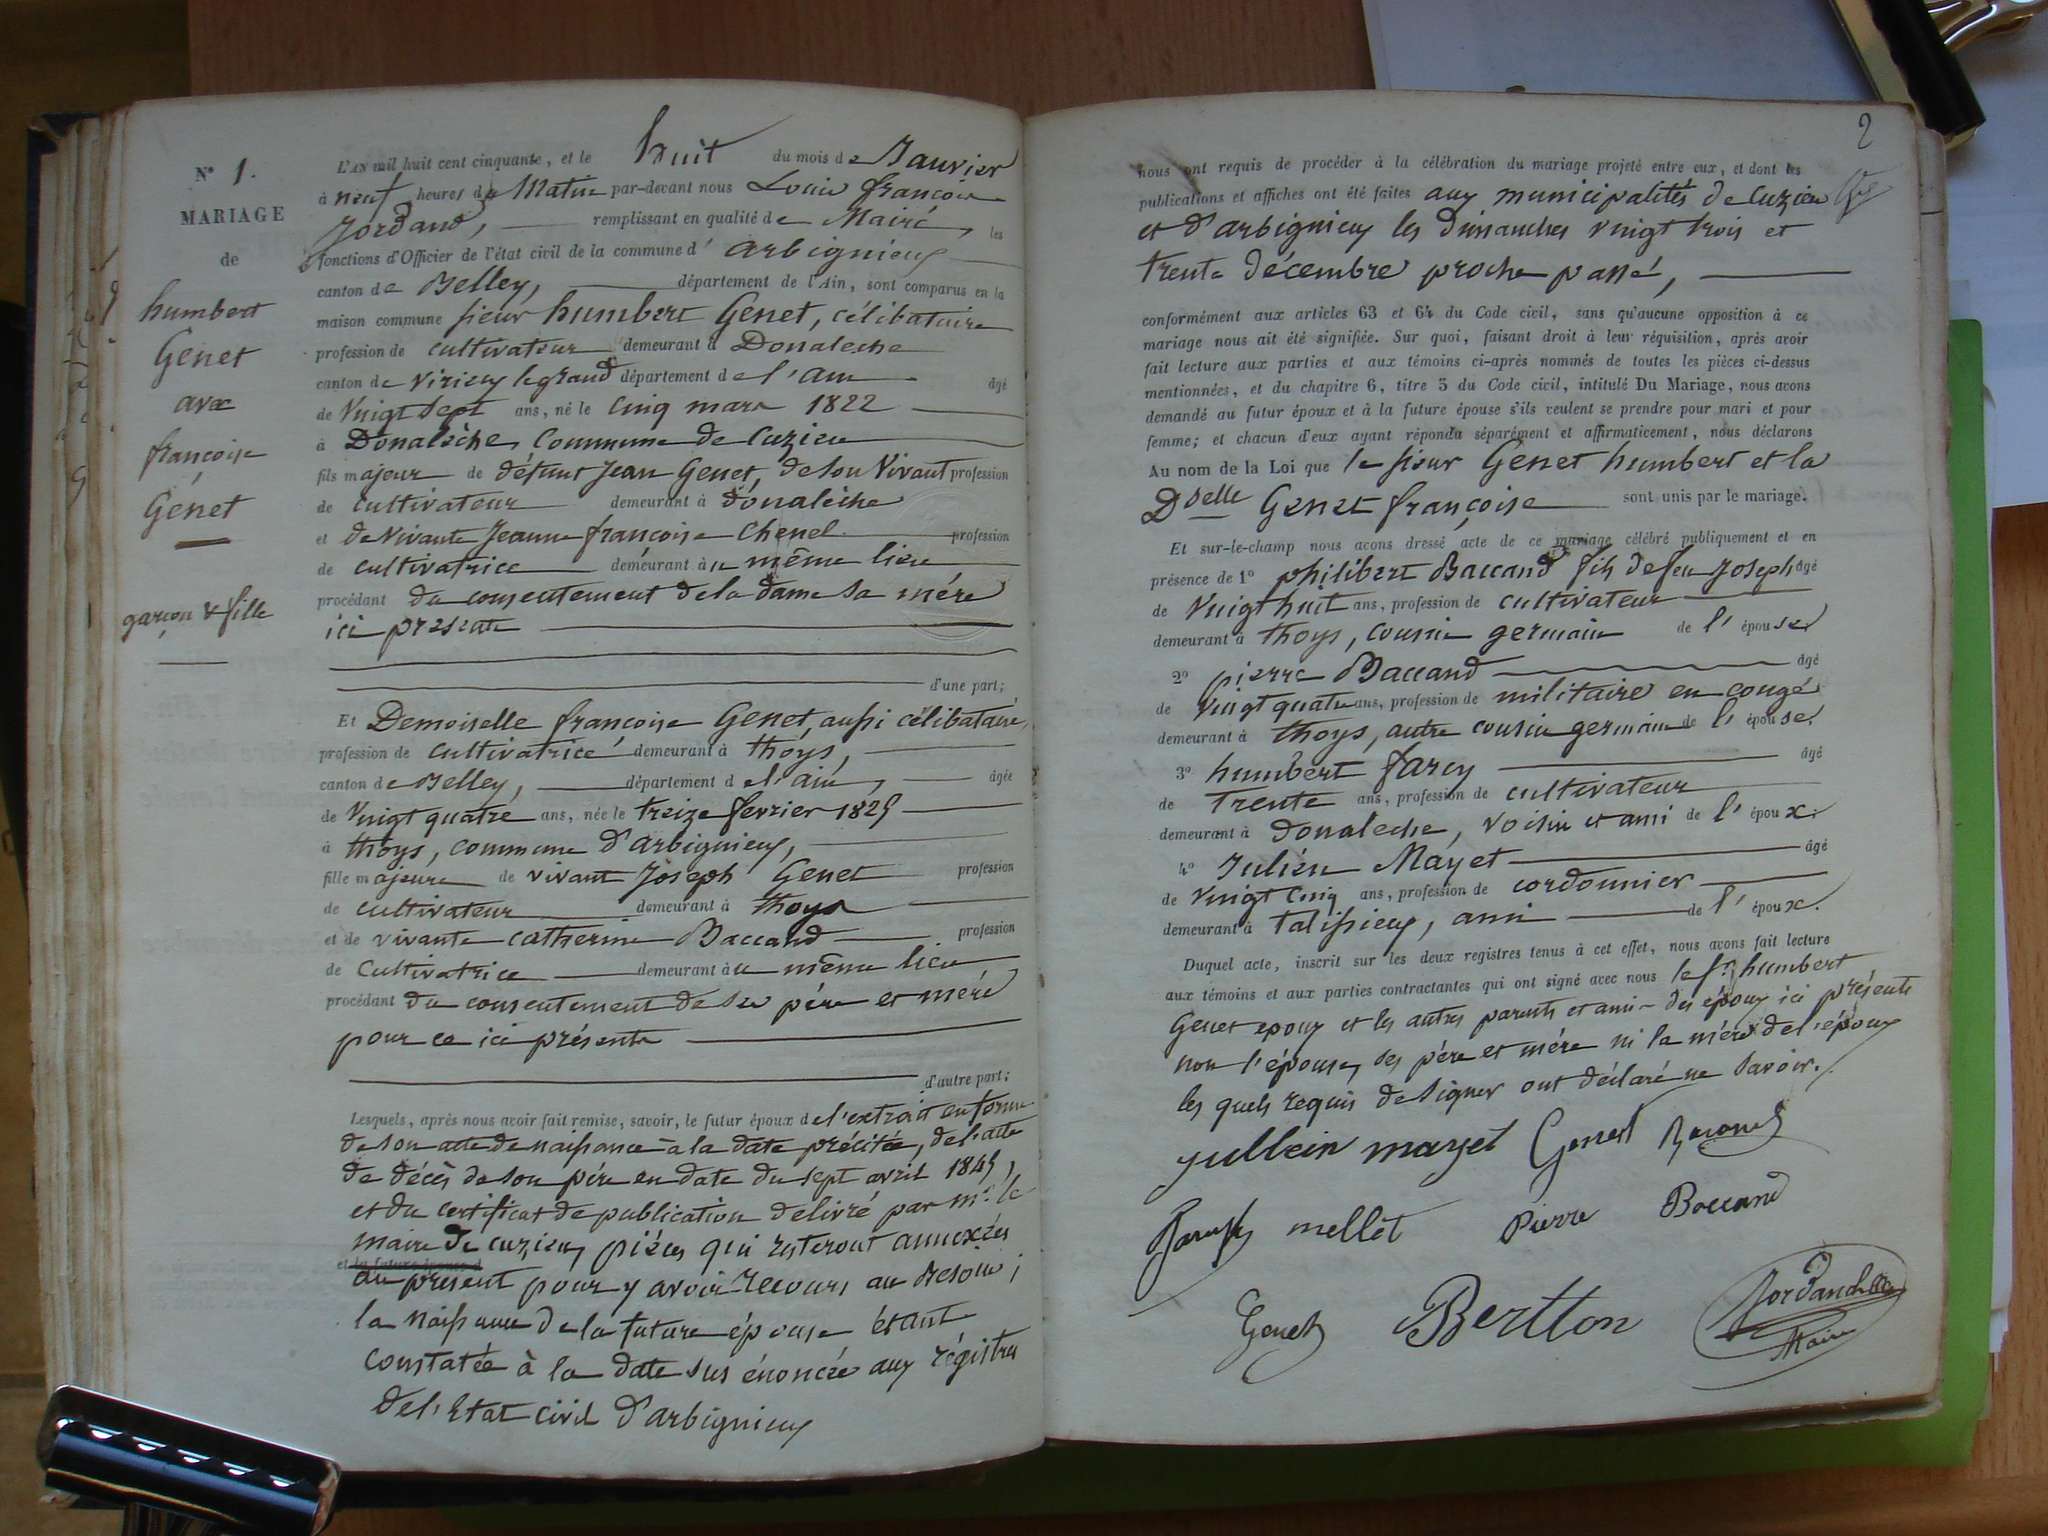 N° 1.
MARIAGE
de
humbert
Genet
avec
françoise
Genet
garçon & fille
L'AN mil huit cent cinquante, et le huit du mois de Janvier
à neuf heures du Matin par-devant nous Louis françois
Jordand, remplissant en qualité de Maire, les
fonctions d'Officier de l'état civil de la commune d' arbignieux
canton de Belley, département de l'Ain, sont comparus en la
maison commune sieur humbert Genet, célibataire
profession de cultivateur demeurant à Donaleche
canton de virieux legrand département de l'ain âgé
de Vingt sept ans, né le cinq mars 1822
à Donalèche, commune de Cuzieu
fils majeur de défunt Jean Genet, de son Vivant profession
de cultivateur demeurant à donalèche
et de Vivante Jeanne françoise Chenel profession
de cultivatrice demeurant au même lieu
procédant du consentement de la dame sa mère
ici présente
d'une part;
Et Demoiselle françoise Genet, aussi célibataire,
profession de cultivatrice demeurant à thoys,
canton de Belley, département de l'ain, âgée
de Vingt quatre ans, née le treize fevrier 1825
à thoys, commune d'arbignieux,
fille majeure de vivant Joseph Genet profession
de cultivateur demeurant à thoys
et de vivante catherine Baccand profession
de Cultivatrice demeurant au même lieu
procédant du consentement de ses père et mère
pour ce ici présents
d'autre part;
Lesquels, après nous avoir fait remise, savoir, le futur époux de l'extrait en forme
de son acte de naissance à la date précitée, de l'acte
de décès de son père en date du sept avril 1845,
et du certificat de publication délivré par mr le
maire de cuzieu, pièces qui resteront annexées
et la future épouse d
au présent pour y avoir recours au besoin;
la naissance de la future épouse étant
constatée à la date sus énoncée aux régistres
de l'Etat civil d'arbignieux
2
nous ont requis de procéder à la célébration du mariage projeté entre eux, et dont les
publications et affiches ont été faites aux municipalités de Cuzieu
et d'arbignieux les dimanches vingt trois et
trente décembre proche passé,
conformément aux articles 63 et 64 du Code civil, sans qu'aucune opposition à ce
mariage nous ait été signifiée. Sur quoi, faisant droit à leur réquisition, après avoir
fait lecture aux parties et aux témoins ci-après nommés de toutes les pièces ci-dessus
mentionnées, et du chapitre 6, titre 5 du Code civil, intitulé Du Mariage, nous avons
demandé au futur époux et à la future épouse s'ils veulent se prendre pour mari et pour
femme; et chacun d'eux ayant répondu séparément et affirmativement, nous déclarons
Au nom de la Loi que le sieur Genet humbert et la
Dselle Genet françoise sont unis par le mariage.
Et sur-le-champ nous avons dressé acte de ce mariage célébré publiquement et en
présence de 1° philibert Baccand fils de feu Joseph âgé
de Vingt huit ans, profession de cultivateur
demeurant à thoys, cousin germain de l'épouse
2° pierre Baccand âgé
de vingt quatre ans, profession de militaire en congé
demeurant à thoys, autre cousin germain de l'épouse.
3° humbert farcy âgé
de trente ans, profession de cultivateur
demeurant à donaleche, voisin et ami de l'époux.
4° Julien Mayet âgé
de vingt cinq ans, profession de cordonnier
demeurant à talissieux, ami de l'époux.
Duquel acte, inscrit sur les deux registres tenus à cet effet, nous avons fait lecture
aux témoins et aux parties contractantes qui ont signé avec nous le sr humbert
Genet epoux et les autres parents et amis des époux ici présents
non l'épouse, ses père et mère ni la mère de l'époux
les quels requis de signer ont déclaré ne savoir.
jullein mayet Genest
mellet Pierre Baccand
Genet Bertton
Maire